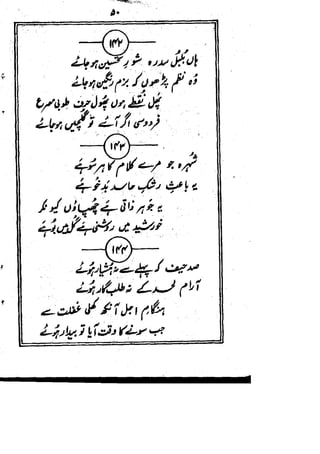 ۵۰
۱۴۲
ہاں بلبل سدرہ شور تحسین ہو جائے
وہ نظم پڑھوں کہ بزم رنگین ہو جائے
پھل نقطے ہوں پھول حرف طوبی مصرع
فردوسی اگر آئے تو گلچیں ہو جائے
۱۴۳
شہرہ جو مرے کلام کا ہر سو ہے
یہ باعث رشک حاسد بد خو ہے
یہ جوہر ذاتی ہے چھپاؤں کیونکر
خورشید میں روشنی ہے گل میں بو ہے
۱۴۴
صد حیف کہ پہلے سے نہ ہشیار ہوئے
آرام لحد کے نہ طلبگار ہوئے
ہنگام اجل آنکھ کھلی غفلت سے
جب سونے کا وقت آیا تو بیدار ہوئے